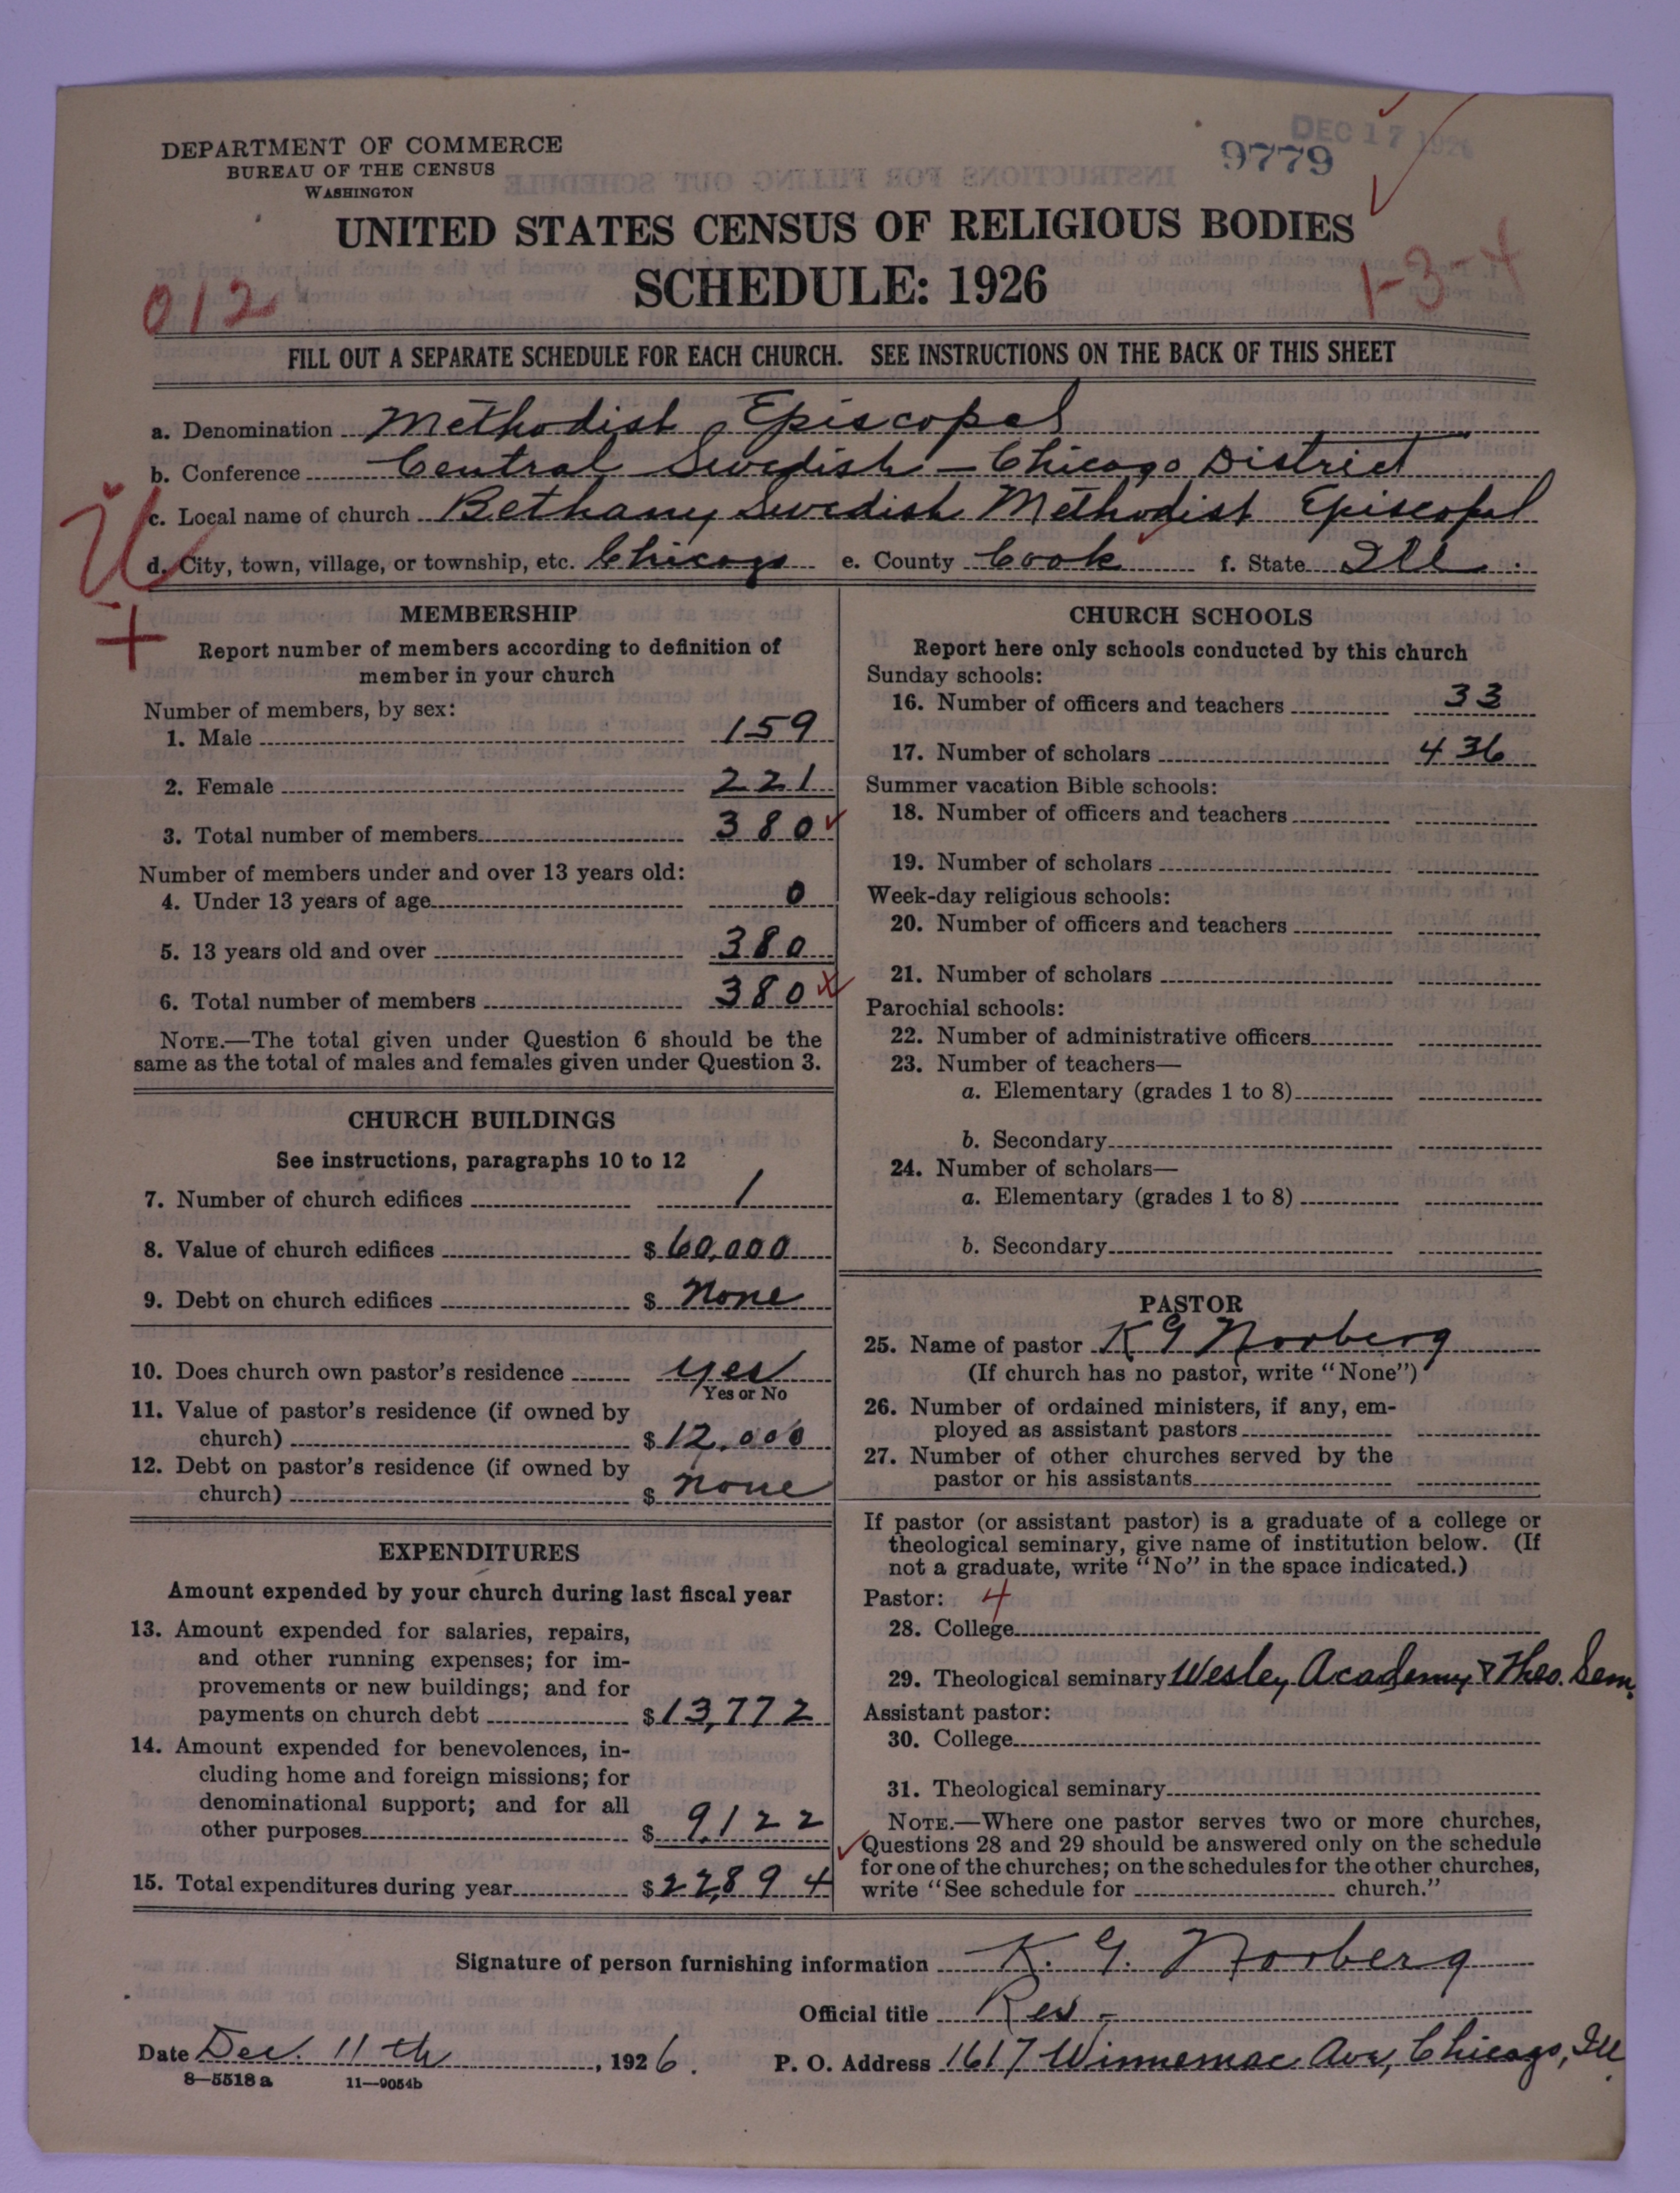 DEPARTMENT OF COMMERCE
BUREAU OF THE CENSUS
WASHINGTON
DEC 17 1926
9779
UNITED STATES CENSUS OF RELIGIOUS BODIES
SCHEDULE: 1926
012
1-3-4
FILL OUT A SEPARATE SCHEDULE FOR EACH CHURCH. SEE INSTRUCTIONS ON THE BACK OF THIS SHEET
a. Denomination Methodist Episcopal
b. Conference Central Swedish - Chicago District
c. Local name of church Bethany Swedish Methodist Episcopal
d. City, town, village, or township, etc. Chicago e. County Cook f. State Ill.
MEMBERSHIP
Report number of members according to definition of
member in your church
Number of members, by sex:
1. Male 159
2. Female 221
3. Total number of members 380
Number of members under and over 13 years old:
4. Under 13 years of age 0
5. 13 years old and over 380
6. Total number of members 380
NOTE.—The total given under Question 6 should be the
same as the total of males and females given under Question 3.
CHURCH BUILDINGS
See instructions, paragraphs 10 to 12
7. Number of church edifices 1
8. Value of church edifices $ 60,000
9. Debt on church edifices $ None
10. Does church own pastor's residence yes
Yes or No
11. Value of pastor's residence (if owned by
church) $ 12,000
12. Debt on pastor's residence (if owned by
church) $ none
EXPENDITURES
Amount expended by your church during last fiscal year
13. Amount expended for salaries, repairs,
and other running expenses; for im-
provements or new buildings; and for
payments on church debt $ 13,772
14. Amount expended for benevolences, in-
cluding home and foreign missions; for
denominational support; and for all
other purposes $ 9,122
15. Total expenditures during year $ 22,894
CHURCH SCHOOLS
Report here only schools conducted by this church
Sunday schools:
16. Number of officers and teachers 33
17. Number of scholars 436
Summer vacation Bible schools:
18. Number of officers and teachers
19. Number of scholars
Week-day religious schools:
20. Number of officers and teachers
21. Number of scholars
Parochial schools:
22. Number of administrative officers
23. Number of teachers—
a. Elementary (grades 1 to 8)
b. Secondary
24. Number of scholars—
a. Elementary (grades 1 to 8)
b. Secondary
PASTOR
25. Name of pastor K G Norberg
(If church has no pastor, write "None")
26. Number of ordained ministers, if any, em-
ployed as assistant pastors
27. Number of other churches served by the
pastor or his assistants
If pastor (or assistant pastor) is a graduate of a college or
theological seminary, give name of institution below. (If
not a graduate, write "No" in the space indicated.)
Pastor: 4
28. College
29. Theological seminary Wesley Academy & Theo. Sem.
Assistant pastor:
30. College
31. Theological seminary
NOTE.—Where one pastor serves two or more churches,
Questions 28 and 29 should be answered only on the schedule
for one of the churches; on the schedules for the other churches,
write "See schedule for church."
Signature of person furnishing information K. G. Norberg
Official title Rev -
Date Dec. 11th, 1926. P. O. Address 1617 Winnemac Ave, Chicago, Ill.
8—5518 a 11—9054b